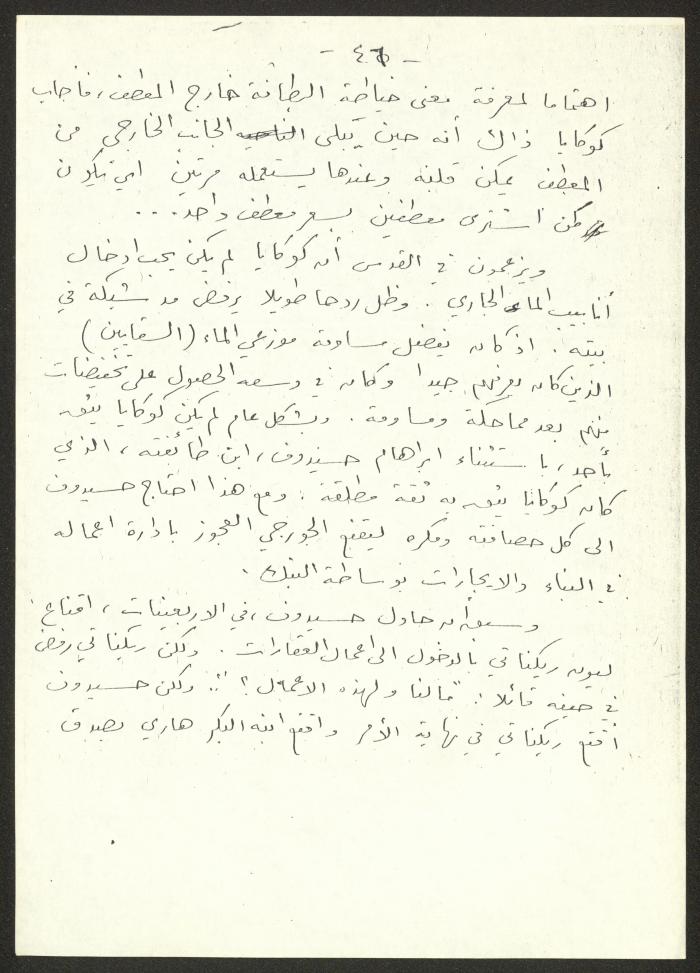 - ٤٦ -
اهتماما لمعرفة معنى خياطة البطانة خارج المعطف، فأجاب
كوكايا ذاك أنه حين يبلى الجانب الخارجي من
المعطف يمكن قلبه وعندها يستعمله مرتين اي يكون
كمن اشترى معطفين بسعر معطف واحد...
ويزعمون في القدس أن كوكايا لم يكن يحب ادخال
أنابيب الماء الجاري. وظل ردحا طويلا يرفض مد شبكة في
بيته. اذ كان يفضل مساومة موزعي الماء (السقايين)
الذين كان يعرفهم جيدا وكان في وسعه الحصول على تخفيضات
منهم بعد مماحكة ومساومة. وبشكل عام لم يكن كوكايا يثق
بأحد، باستثناء ابراهام حسيدوف، ابن طائفته، الذي
كان كوكايا يثق به ثقة مطلقة. ومع هذا احتاج حسيدوف
الى كل حصافته ومكره ليقنع الجورجي العجوز بادارة اعماله
في البناء والايجارات بوساطة البنك.
وسبق أن حاول حسيدوف، في الاربعينات، اقناع
ليون ريكناتي بالدخول الى اعمال العقارات. ولكن ريكناتي رفض
في حينه قائلا: "مالنا ولهذه الاعمال؟".. ولكن حسيدوف
أقنع ريكناتي في نهاية الأمر واقنع ابنه البكر هاري بصدق